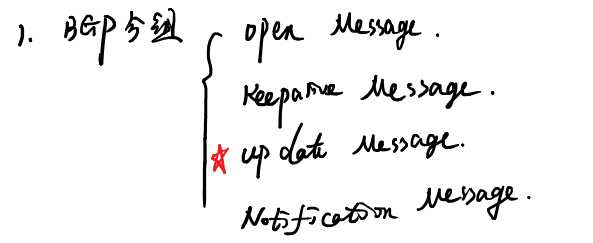 1. BGP分组
open Message.
Keepalive Message.
☆ update Message.
Notification Message.